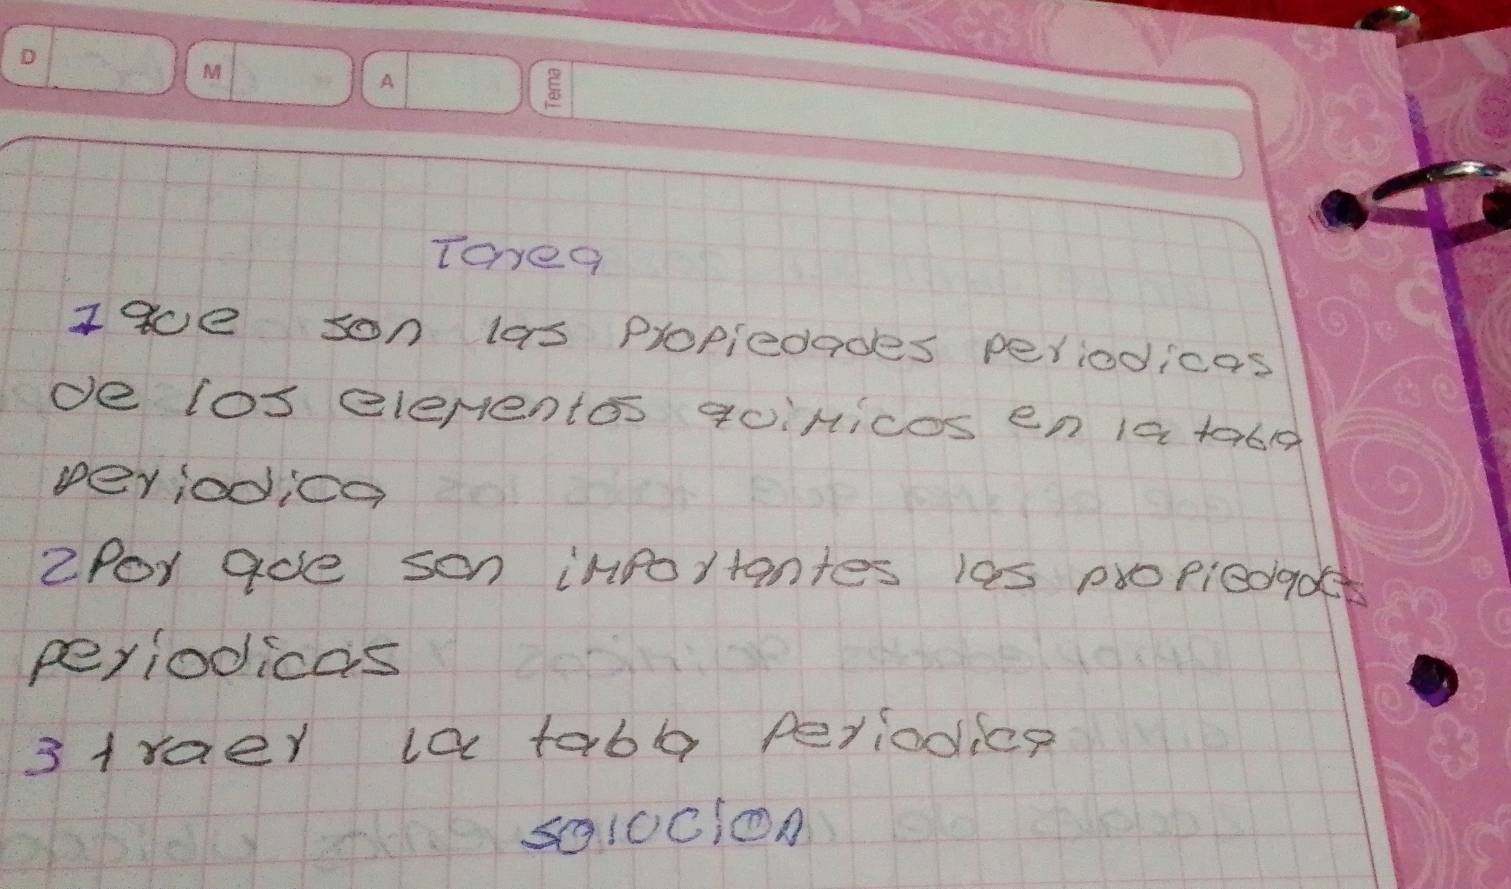 D M A Tema
Tarea
1 que son las propiedades periodicas
de los elementos quimicos en la tabla
periodica
2 Por que son importantes las propiedades
periodicas
3 traer la tabla periodica
solucion